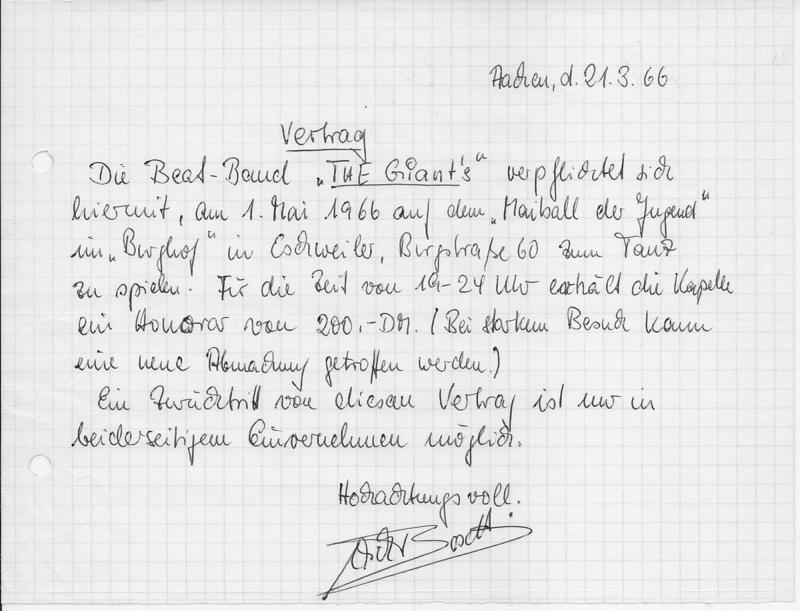 Aachen, d. 21.3.66
Vertrag
Die Beat-Band „THE Giant's“ verpflichtet sich
hiermit, am 1. Mai 1966 auf dem „Maiball der Jugend“
im „Burghof“ in Eschweiler, Burgstraße 60 zum Tanz
zu spielen. Für die Zeit von 19-24 Uhr erhält die Kapelle
ein Honorar von 200,-DM. (Bei starkem Besuch kann
eine neue Abmachung getroffen werden.)
Ein Rücktritt von diesem Vertrag ist nur in
beiderseitigem Einvernehmen möglich.
Hochachtungsvoll.